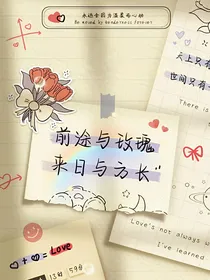 永远会因为温柔而心动
Be moved by tenderness forever
天上只有
世间只有
前途与玫瑰
来日与方长"
There is
Love's not always w
I've learned
+ = Love